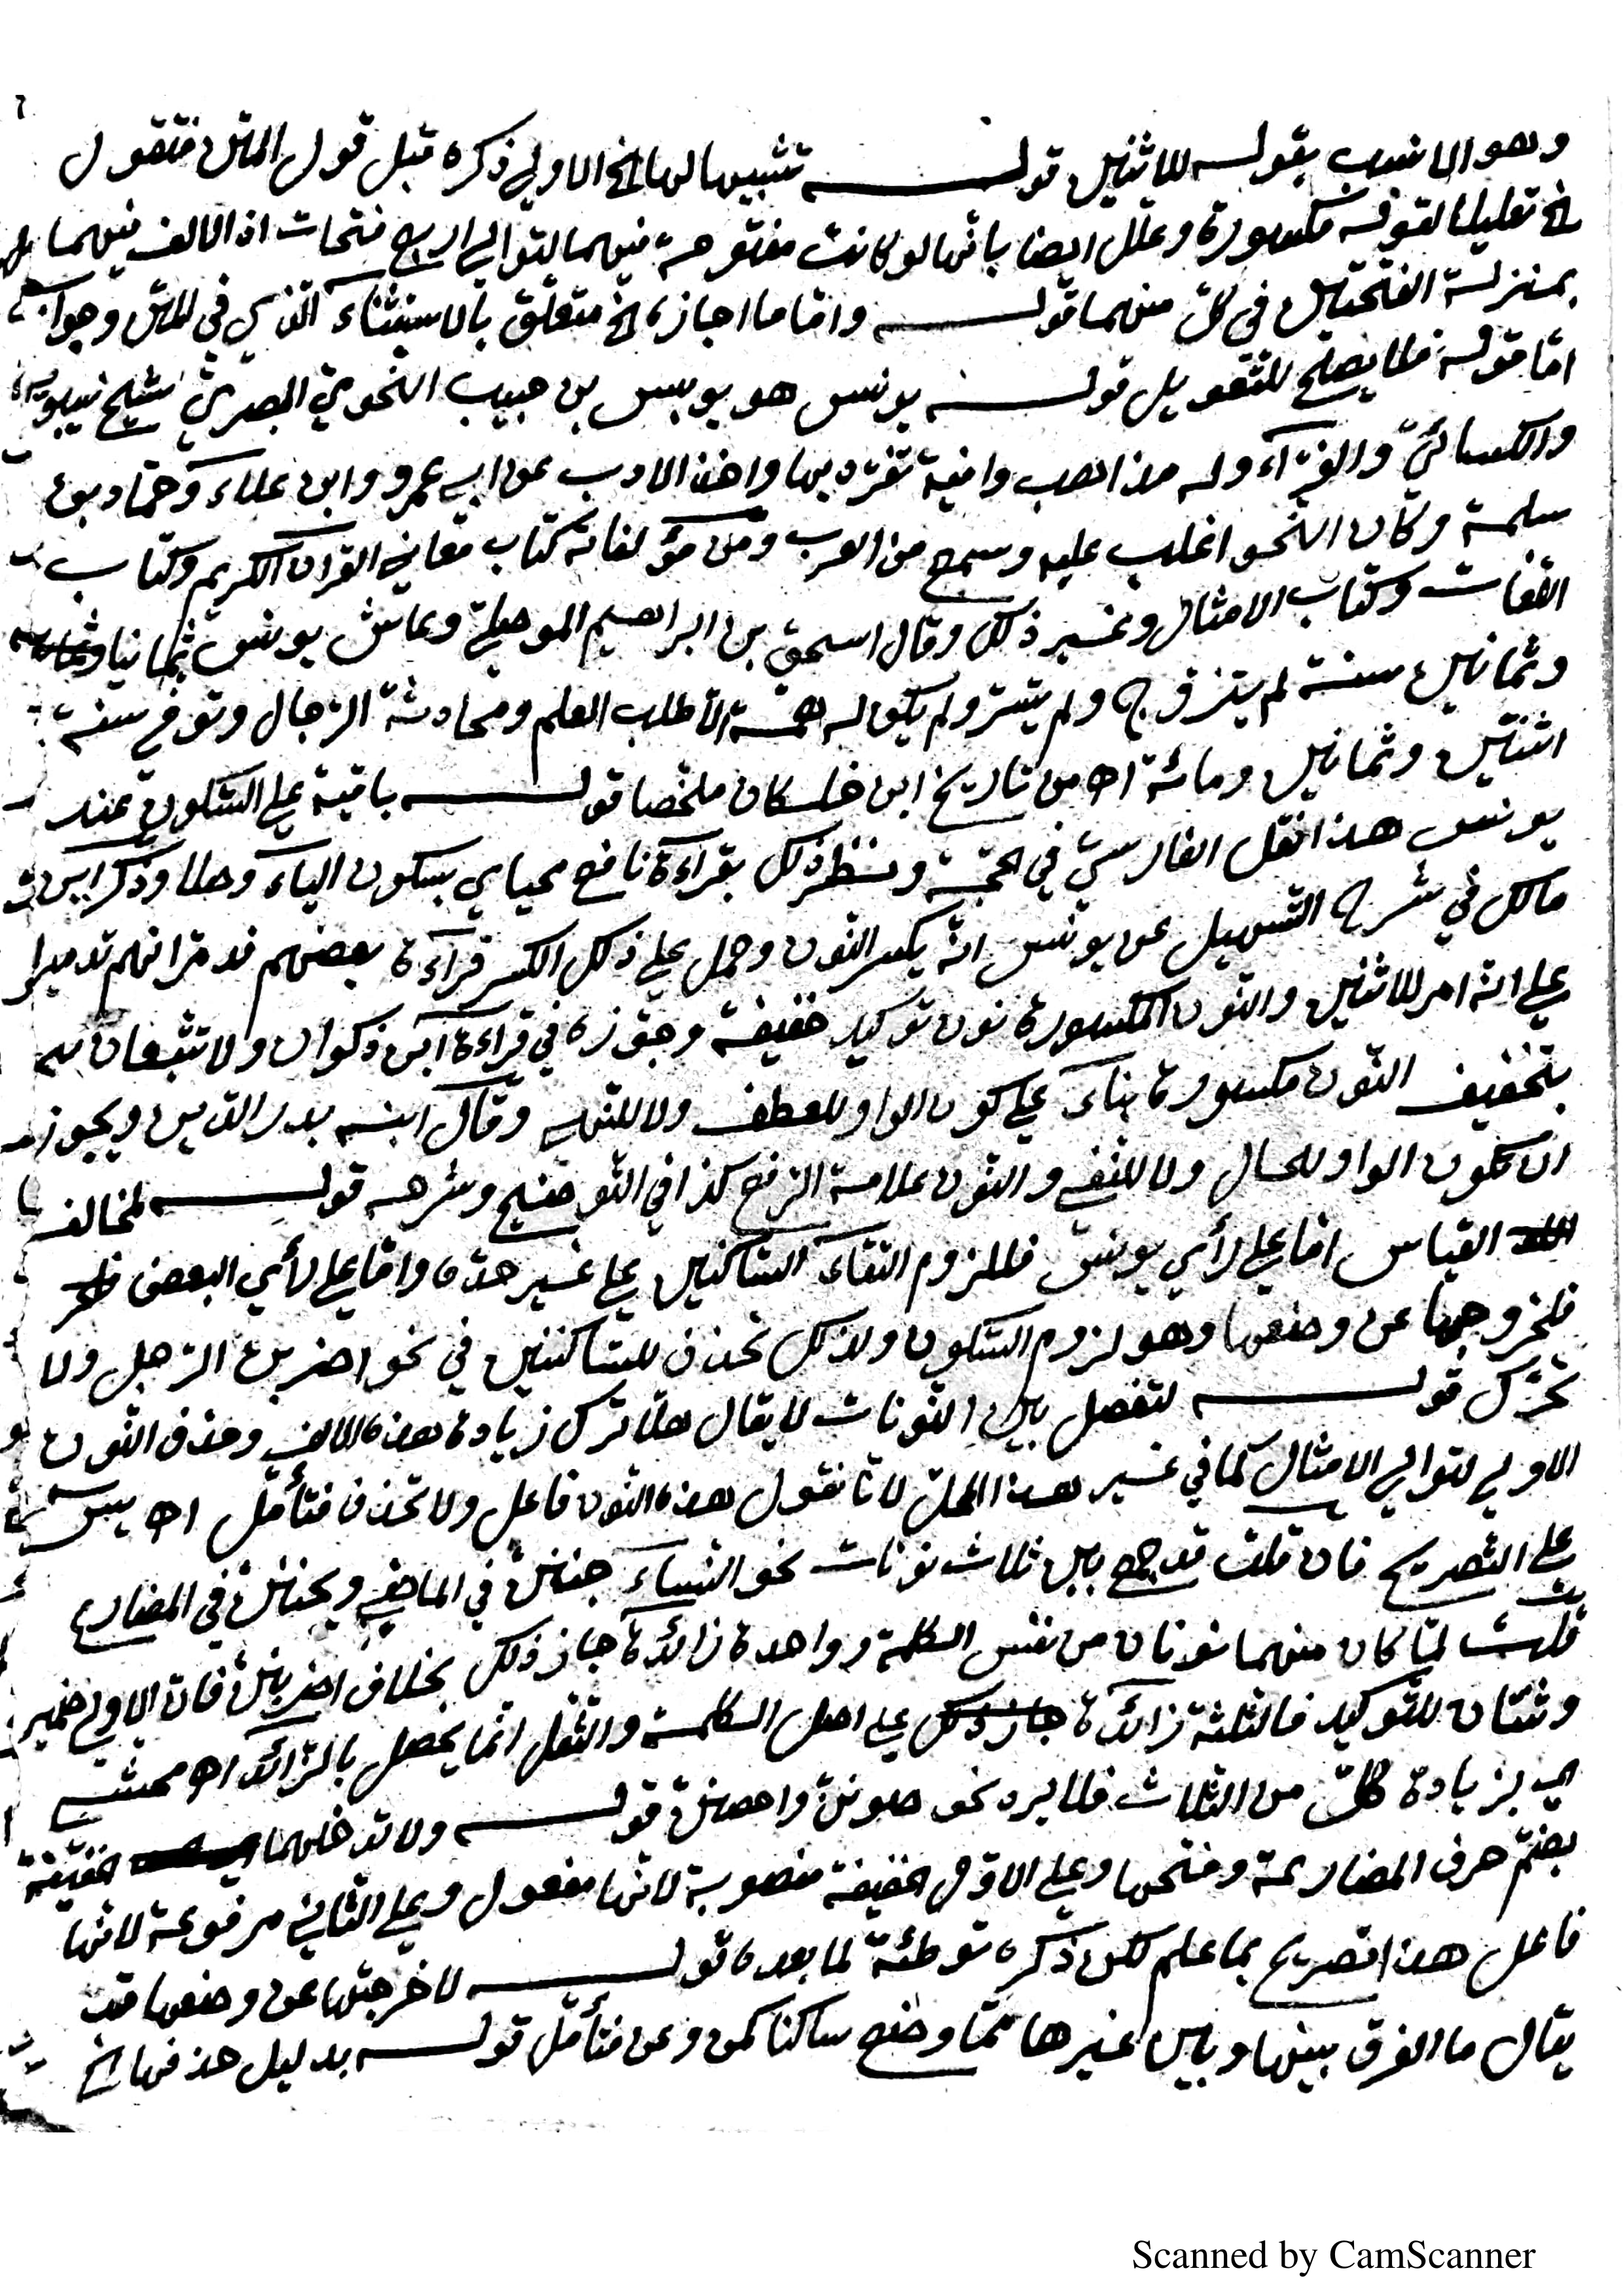 وهو الانسب بقوله للاثنين قوله تشبيها لها الخ الاولى ذكره قبل قول المتن فتقول
الخ تعليلا لقوله مكسورة وعلل ايضا بانها لو كانت مفتوحة فيهما لتوالى اربع فتحات اذ الالف فيهما
بمنزلة الفتحتين في كل منهما قوله واما ما اجازه الخ متعلق بالاستثناء الذي في المتن وجواب
اما قوله فلا يصلح للتعويل قوله يونس هو يونس بن حبيب النحوي البصري شيخ سيبويه
والكسائي والفراء وله مذاهب واقية تفرد بها واخذ الادب عن ابي عمرو وابن علاء وحماد بن
سلمة وكان النحو اغلب عليه وسمع من العرب ومن مؤلفاته كتاب معاني القران الكريم وكتاب
اللغات وكتاب الامثال وغير ذلك وقال اسحق بن ابراهيم الموصلي وعاش يونس ثمانيا
وثمانين سنة لم يتزوج ولم يتسر ولم يكن له همة الا طلب العلم ومحادثة الرجال وتوفي سنة
اثنتين وثمانين ومائة اه من تاريخ ابن خلكان ملخصا قوله باقية على السكون عند
يونس هذا نقل الفارسي في الحجة ونظر ذلك بقراءة نافع محياي بسكون الياء وصلا وذكر ابن
مالك في شرح التسهيل عن يونس انه يكسر النون وحمل على ذلك الكسر قراءة بعضهم فدمرانهم تدميرا
على انه امر للاثنين والنون المكسورة نون توكيد خفيفة وجوزه في قراءة ابن ذكوان ولا تتبعان
بتخفيف النون مكسورة بناء على كون الواو للعطف ولا للنهي وقال ابنه بدر الدين ويجوز
ان تكون الواو للحال ولا للنفي والنون علامة الرفع كذا في التوضيح وشرحه قوله لمخالف
القياس اما على رأي يونس فللزوم التقاء الساكنين على غير حده واما على رأي البعض
فلخروجها عن وضعها وهو لزوم السكون ولذلك تحذف للساكنين في نحو اضربن الرجل ولا
تحرك قوله لتفصل بين النونات لا يقال هلا ترك زيادة هذه الالف وحذف النون
الاولى لتوالي الامثال كما في غير هذا المحل لانا نقول هذه النون فاعل ولا تحذف فتأمل اه يس
على التصريح فان قلت قد جمع بين ثلاث نونات نحو النساء جننّ في الماضي ويجننّ في المضارع
قلت لما كان منهما نونان من نفس الكلمة وواحدة زائدة جاز ذلك بخلاف اضربننّ فان الاولى ضمير
وثنتان للتوكيد فالثلاثة زائدة على اصل الكلمة والثقل انما يحصل بالزائد اه محشي
اي بزيادة كل من الثلاث فلا يرد نحو صوننّ واحصننّ قوله ولا تدخلهما خفيفة
بضم حرف المضارعة وفتحها وعلى الاول خفيفة منصوبة لانها مفعول وعلى الثاني مرفوعة لانها
فاعل هذا تصريح بما علم لكن ذكره توطئة لما بعده قوله لاخرجتها عن وضعها قد
يقال ما الفرق بينها وبين غيرها مما وضع ساكنا كمن وعن فتأمل قوله بدليل حذفها الخ
Scanned by CamScanner